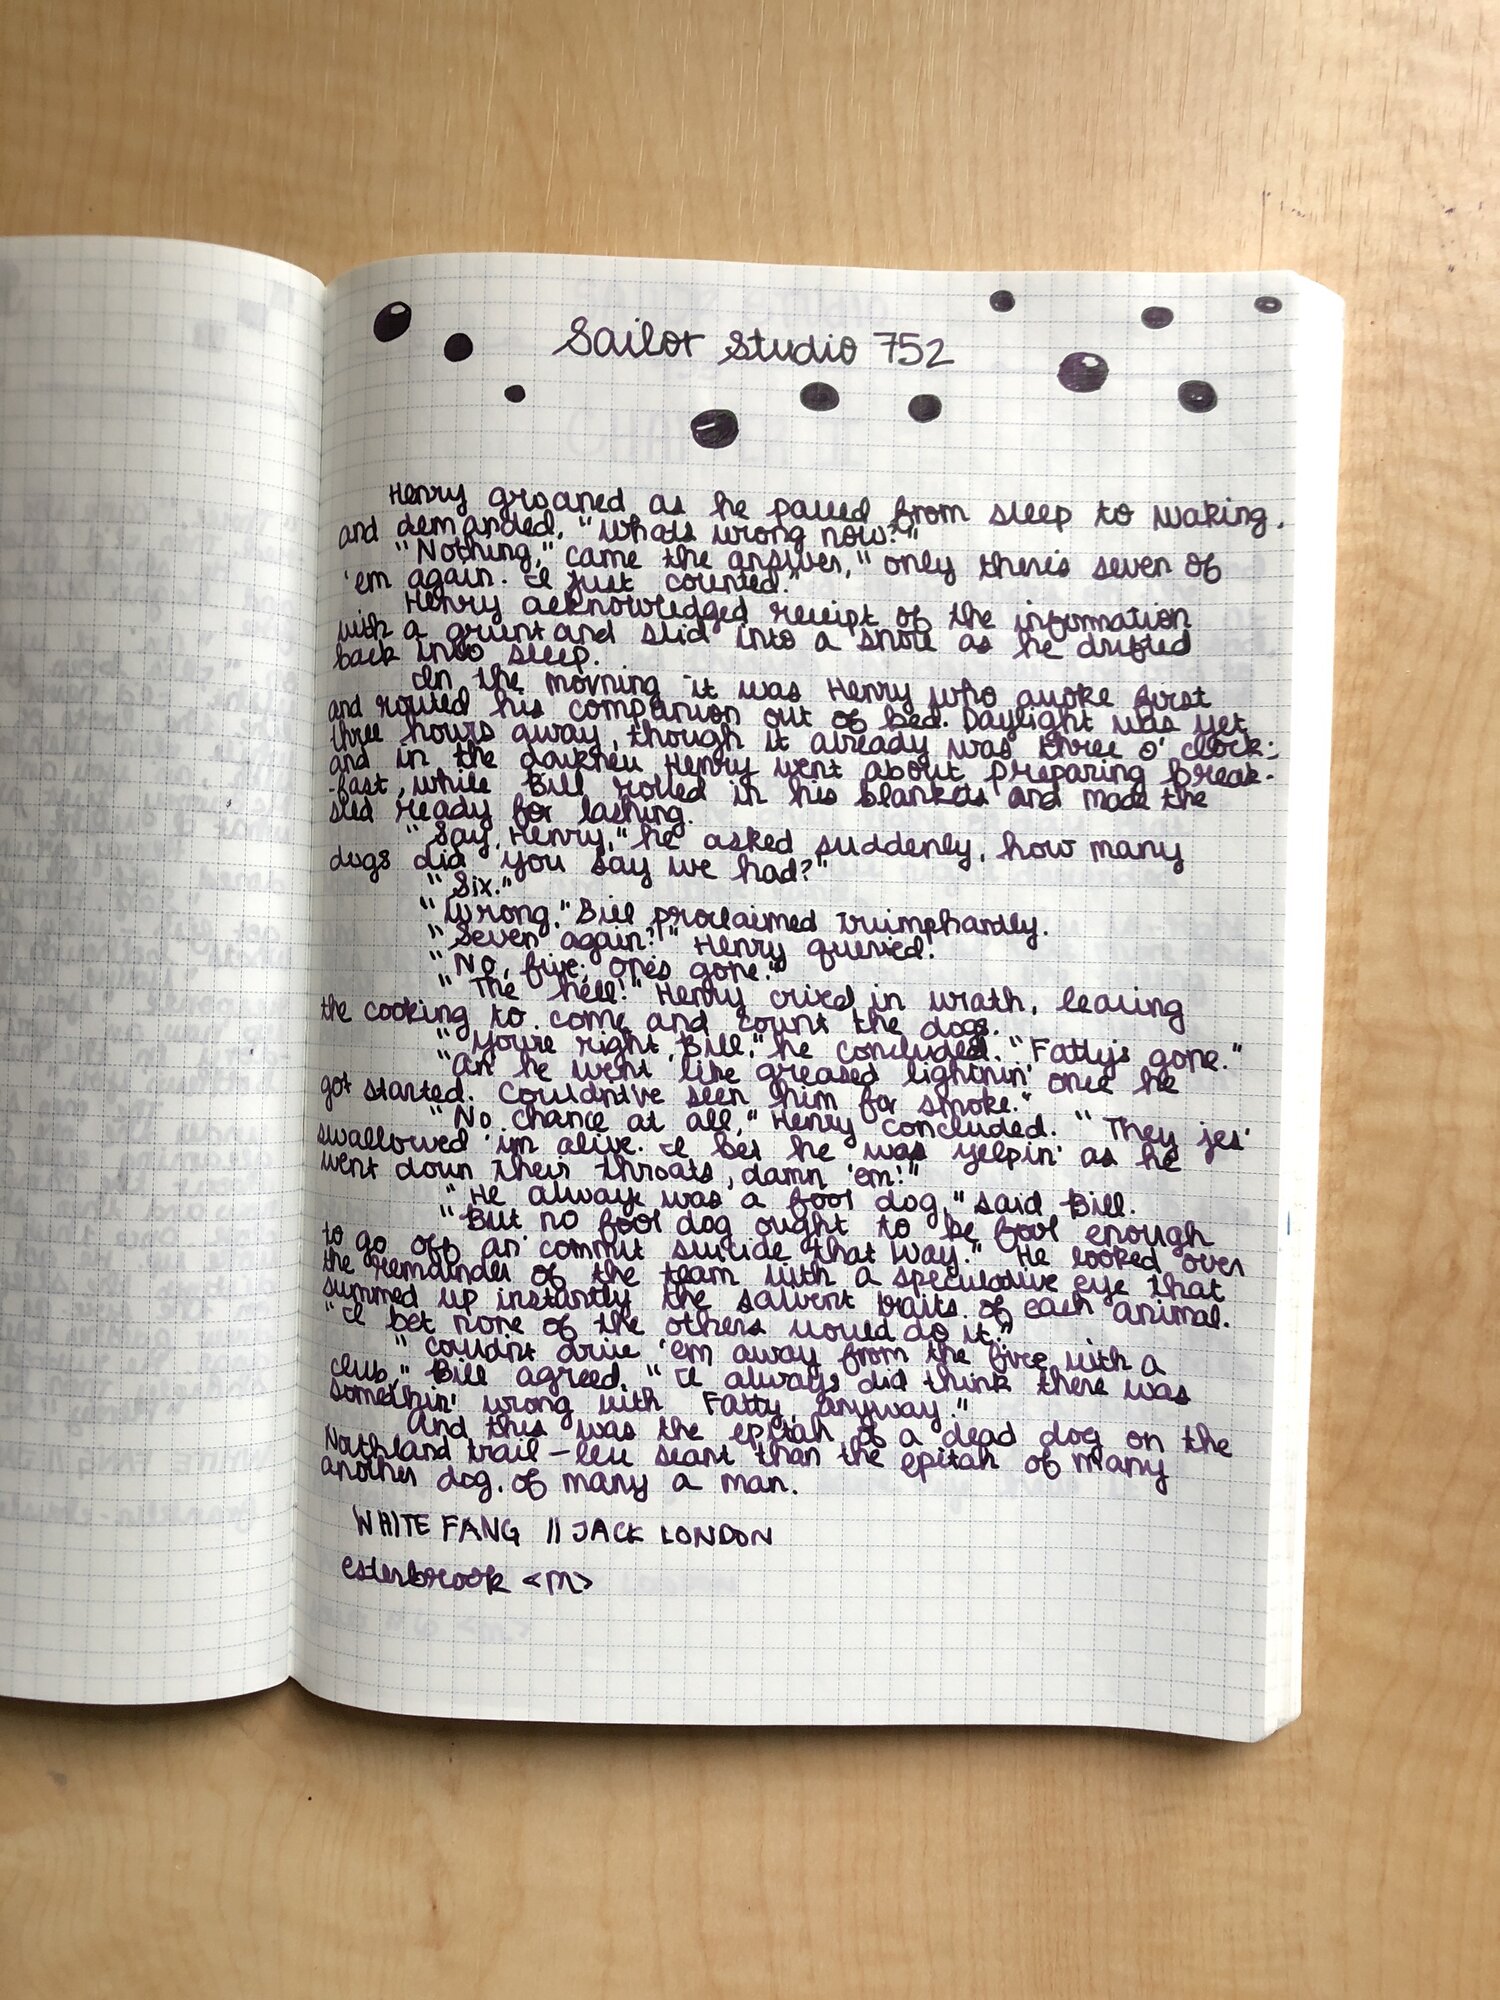 Sailor Studio 752
Henry groaned as he passed from sleep to waking,
and demanded, "Whats wrong now?"
"Nothing," came the answer, "only there's seven of
'em again. I just counted."
Henry acknowledged receipt of the information
with a grunt and slid into a snore as he drifted
back into sleep.
In the morning it was Henry who awoke first
and routed his companion out of bed. Daylight was yet
three hours away, though it already was three o' clock;
and in the darkness Henry went about preparing break-
-fast, while Bill rolled in his blankets and made the
sled ready for lashing.
"Say, Henry," he asked suddenly, how many
dogs did you say we had?"
"Six."
"Wrong," Bill proclaimed triumphantly.
"Seven again?" Henry queried.
"No, five; one's gone."
"The hell!" Henry cried in wrath, leaving
the cooking to come and count the dogs.
"You're right, Bill," he concluded. "Fatty's gone."
"An' he went like greased lightnin' once he
got started. Couldn't've seen him for smoke."
"No chance at all," Henry concluded. "They jes'
swallowed 'im alive. I bet he was yelpin' as he
went down their throats, damn 'em!"
"He always was a fool dog," said Bill.
"But no fool dog ought to be fool enough
to go off an' commit suicide that way." He looked over
the remainder of the team with a speculative eye that
summed up instantly the salient traits of each animal.
"I bet none of the others would do it."
"Couldn't drive 'em away from the fire with a
club," Bill agreed. "I always did think there was
somethin' wrong with Fatty, anyway."
And this was the epitah of a dead dog on the
Northland trail – less scant than the epitah of many
another dog, of many a man.
WHITE FANG // JACK LONDON
esterbrook <m>